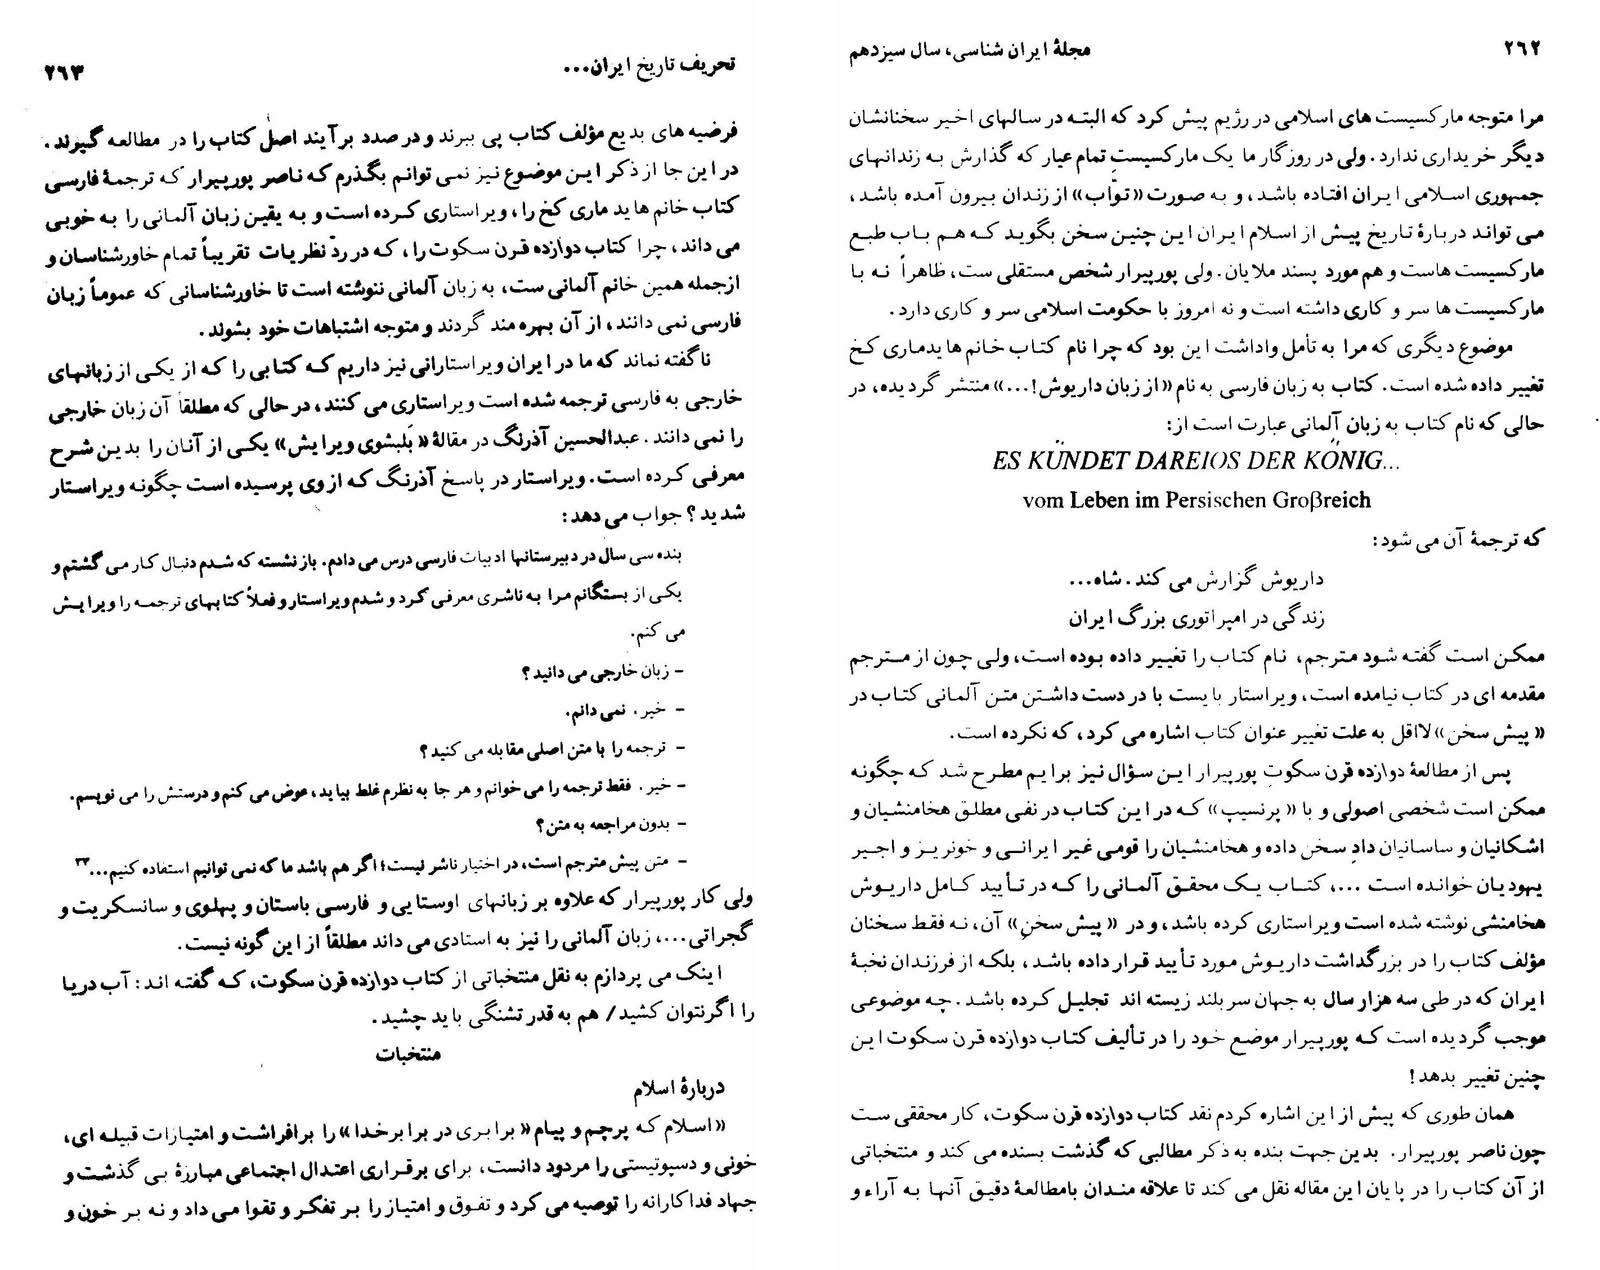 ۲۶۲
مجلهٔ ایران شناسی، سال سیزدهم
مرا متوجه مارکسیست های اسلامی در رژیم پیش کرد که البته در سالهای اخیر سخنانشان
دیگر خریداری ندارد. ولی در روزگار ما یک مارکسیستِ تمام عیار که گذارش به زندانهای
جمهوری اسلامی ایران افتاده باشد، و به صورت «توّاب» از زندان بیرون آمده باشد،
می تواند دربارهٔ تاریخ پیش از اسلام ایران این چنین سخن بگوید که هم باب طبع
مارکسیست هاست و هم مورد پسند ملایان. ولی پورپیرار شخص مستقلی ست، ظاهراً نه با
مارکسیست ها سر و کاری داشته است و نه امروز با حکومت اسلامی سر و کاری دارد.
موضوع دیگری که مرا به تأمل واداشت این بود که چرا نام کتاب خانم هایدماری کخ
تغییر داده شده است. کتاب به زبان فارسی به نام «از زبان داریوش!...» منتشر گردیده، در
حالی که نام کتاب به زبان آلمانی عبارت است از:
ES KÜNDET DAREIOS DER KÖNIG...
vom Leben im Persischen Großreich
که ترجمهٔ آن می شود:
داریوش گزارش می کند. شاه...
زندگی در امپراتوری بزرگ ایران
ممکن است گفته شود مترجم، نام کتاب را تغییر داده بوده است، ولی چون از مترجم
مقدمه ای در کتاب نیامده است، ویراستار بایست با در دست داشتن متن آلمانی کتاب در
«پیش سخن» لااقل به علت تغییر عنوان کتاب اشاره می کرد، که نکرده است.
پس از مطالعهٔ دوازده قرن سکوتِ پورپیرار این سؤال نیز برایم مطرح شد که چگونه
ممکن است شخصی اصولی و با «پرنسیپ» که در این کتاب در نفی مطلق هخامنشیان و
اشکانیان و ساسانیان دادِ سخن داده و هخامنشیان را قومی غیر ایرانی و خونریز و اجیر
یهودیان خوانده است ...، کتاب یک محقق آلمانی را که در تأیید کامل داریوش
هخامنشی نوشته شده است ویراستاری کرده باشد، و در «پیش سخنِ» آن، نه فقط سخنان
مؤلف کتاب را در بزرگداشت داریوش مورد تأیید قرار داده باشد، بلکه از فرزندان نخبهٔ
ایران که در طی سه هزار سال به جهان سربلند زیسته اند تجلیل کرده باشد. چه موضوعی
موجب گردیده است که پورپیرار موضع خود را در تألیف کتاب دوازده قرن سکوت این
چنین تغییر بدهد!
همان طوری که پیش از این اشاره کردم نقد کتاب دوازده قرن سکوت، کار محققی ست
چون ناصر پورپیرار. بدین جهت بنده به ذکر مطالبی که گذشت بسنده می کند و منتخباتی
از آن کتاب را در پایان این مقاله نقل می کند تا علاقه مندان با مطالعهٔ دقیق آنها به آراء و
تحریف تاریخ ایران...
۲۶۳
فرضیه های بدیع مؤلف کتاب پی ببرند و در صدد برآیند اصل کتاب را در مطالعه گیرند.
در این جا از ذکر این موضوع نیز نمی توانم بگذرم که ناصر پورپیرار که ترجمهٔ فارسی
کتاب خانم هاید ماری کخ را، ویراستاری کرده است و به یقین زبان آلمانی را به خوبی
می داند، چرا کتاب دوازده قرن سکوت را، که در ردّ نظریات تقریباً تمام خاورشناسان و
ازجمله همین خانم آلمانی ست، به زبان آلمانی ننوشته است تا خاورشناسانی که عموماً زبان
فارسی نمی دانند، از آن بهره مند گردند و متوجه اشتباهات خود بشوند.
ناگفته نماند که ما در ایران ویراستارانی نیز داریم که کتابی را که از یکی از زبانهای
خارجی به فارسی ترجمه شده است ویراستاری می کنند، در حالی که مطلقاً آن زبان خارجی
را نمی دانند. عبدالحسین آذرنگ در مقالهٔ «بَلبشوی ویرایش» یکی از آنان را بدین شرح
معرفی کرده است. ویراستار در پاسخ آذرنگ که از وی پرسیده است چگونه ویراستار
شدید؟ جواب می دهد:
بنده سی سال در دبیرستانها ادبیات فارسی درس می دادم. بازنشسته که شدم دنبال کار می گشتم و
یکی از بستگانم مرا به ناشری معرفی کرد و شدم ویراستار و فعلاً کتابهای ترجمه را ویرایش
می کنم.
- زبان خارجی می دانید؟
- خیر. نمی دانم.
- ترجمه را با متن اصلی مقابله می کنید؟
- خیر. فقط ترجمه را می خوانم و هر جا به نظرم غلط بیاید، عوض می کنم و درستش را می نویسم.
- بدون مراجعه به متن؟
- متن پیش مترجم است، در اختیار ناشر نیست؛ اگر هم باشد ما که نمی توانیم استفاده کنیم...۳۳
ولی کار پورپیرار که علاوه بر زبانهای اوستایی و فارسی باستان و پهلوی و سانسکریت و
گجراتی...، زبان آلمانی را نیز به استادی می داند مطلقاً از این گونه نیست.
اینک می پردازم به نقل منتخباتی از کتاب دوازده قرن سکوت، که گفته اند: آب دریا
را اگر نتوان کشید/ هم به قدر تشنگی باید چشید.
منتخبات
دربارهٔ اسلام
«اسلام که پرچم و پیام «برابری در برابر خدا» را برافراشت و امتیازات قبیله ای،
خونی و دسپوتیستی را مردود دانست، برای برقراری اعتدال اجتماعی مبارزهٔ بی گذشت و
جهاد فداکارانه را توصیه می کرد و تفوق و امتیاز را بر تفکر و تقوا می داد و نه بر خون و